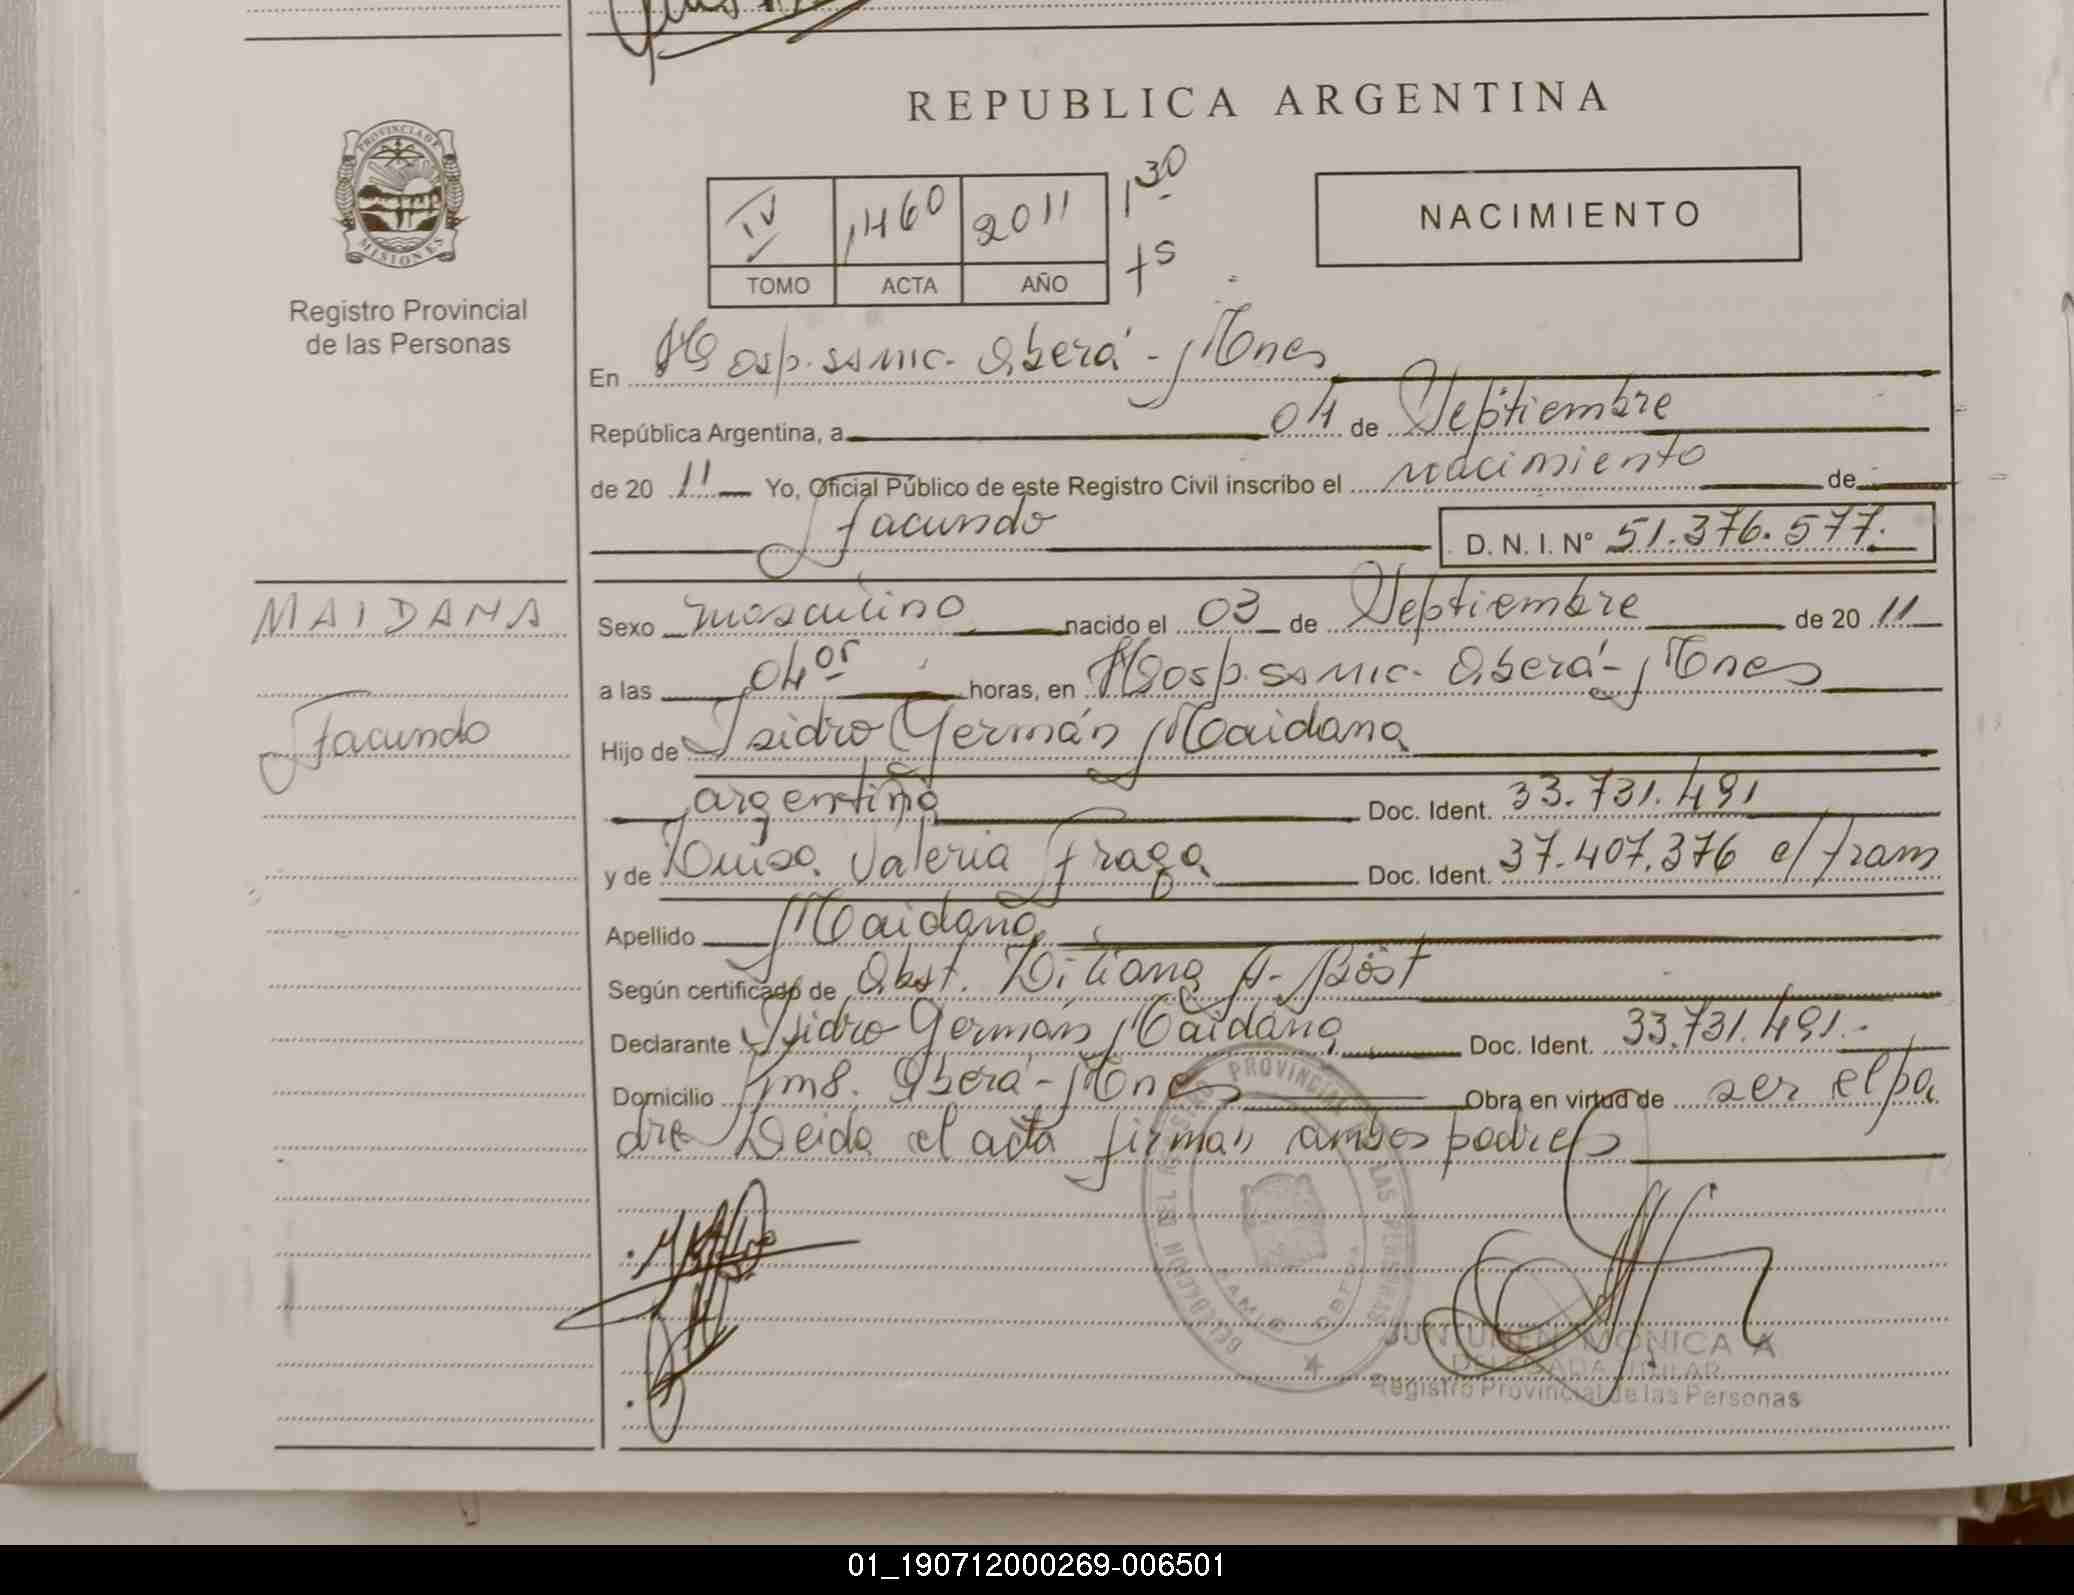 REPUBLICA ARGENTINA
PROVINCIA DE
MISIONES
Registro Provincial
de las Personas
IV 1460 2011
TOMO ACTA AÑO
1 30
NACIMIENTO
En Hosp. SAMIC. Oberá - Mnes
República Argentina, a 04 de Septiembre
de 20 11 Yo, Oficial Público de este Registro Civil inscribo el nacimiento de
Facundo D. N. I. Nº 51.376.577.
MAIDANA
Facundo
Sexo masculino nacido el 03 de Septiembre de 20 11
a las 04 05 horas, en Hosp. SAMIC. Oberá - Mnes
Hijo de Isidro Germán Maidana
argentino Doc. Ident. 33.731.491
y de Luisa Valeria Fraga Doc. Ident. 37.407.376 e/tram
Apellido Maidana
Según certificado de Obst. Liliana A. Bôst
Declarante Isidro Germán Maidana Doc. Ident. 33.731.491.-
Domicilio Km8. Oberá - Mnes Obra en virtud de ser el pa
dre Leida el acta firman ambos padres
PROVINCIAL
DE LAS PERSONAS
DELEGACION DEL
SAMIC OBERA
MONICA A
DELEGADA TITULAR
Registro Provincial de las Personas
01_190712000269-006501